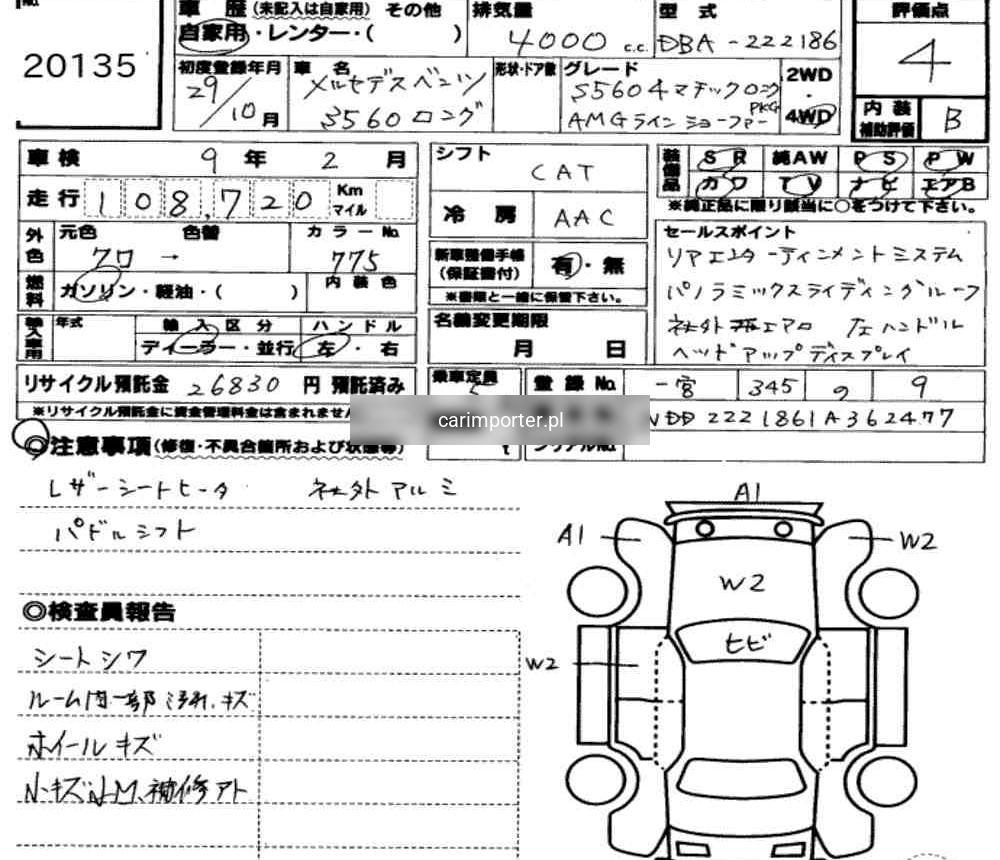 No.
20135
車歴(未記入は自家用) その他
自家用・レンター・( )
排気量
4000 c.c.
型式
DBA-222186
評価点
4
初度登録年月
29/10月
車名
メルセデスベンツ
S560ロング
形状・ドア数
グレード
S5604マチックロング
AMGラインショーファーPKG
2WD
・
4WD
内装
補助評価
B
車検 9年 2月
走行 108,720 Km マイル
外色
元色 色替
クロ →
カラーNo.
775
燃料
ガソリン・軽油・( )
内装色
輸入車用
年式
輸入区分
ディーラー・並行
ハンドル
左・右
リサイクル預託金 26830 円 預託済み
※リサイクル預託金に資金管理料金は含まれません
シフト
CAT
冷房
AAC
新車整備手帳
(保証書付)
有・無
※書類と一緒に保管下さい。
名義変更期限
月 日
乗車定員
5
t
装備品
SR 純AW PS PW
カワ TV ナビ エアB
※純正品に限り該当に○をつけて下さい。
セールスポイント
リアエンターティンメントシステム
パノラミックスライディングルーフ
社外エアロ 左ハンドル
ヘッドアップディスプレイ
登録No. 一宮 345 の 9
WDD2221861A362477
シリアルNo.
carimporter.pl
◎注意事項(修復・不具合箇所および状態等)
レザーシートヒータ 社外アルミ
パドルシフト
◎検査員報告
シートシワ
ルーム内一部汚れ、キズ
ホイールキズ
小キズ小凹、補修アト
A1
A1
W2
W2
ヒビ
W2